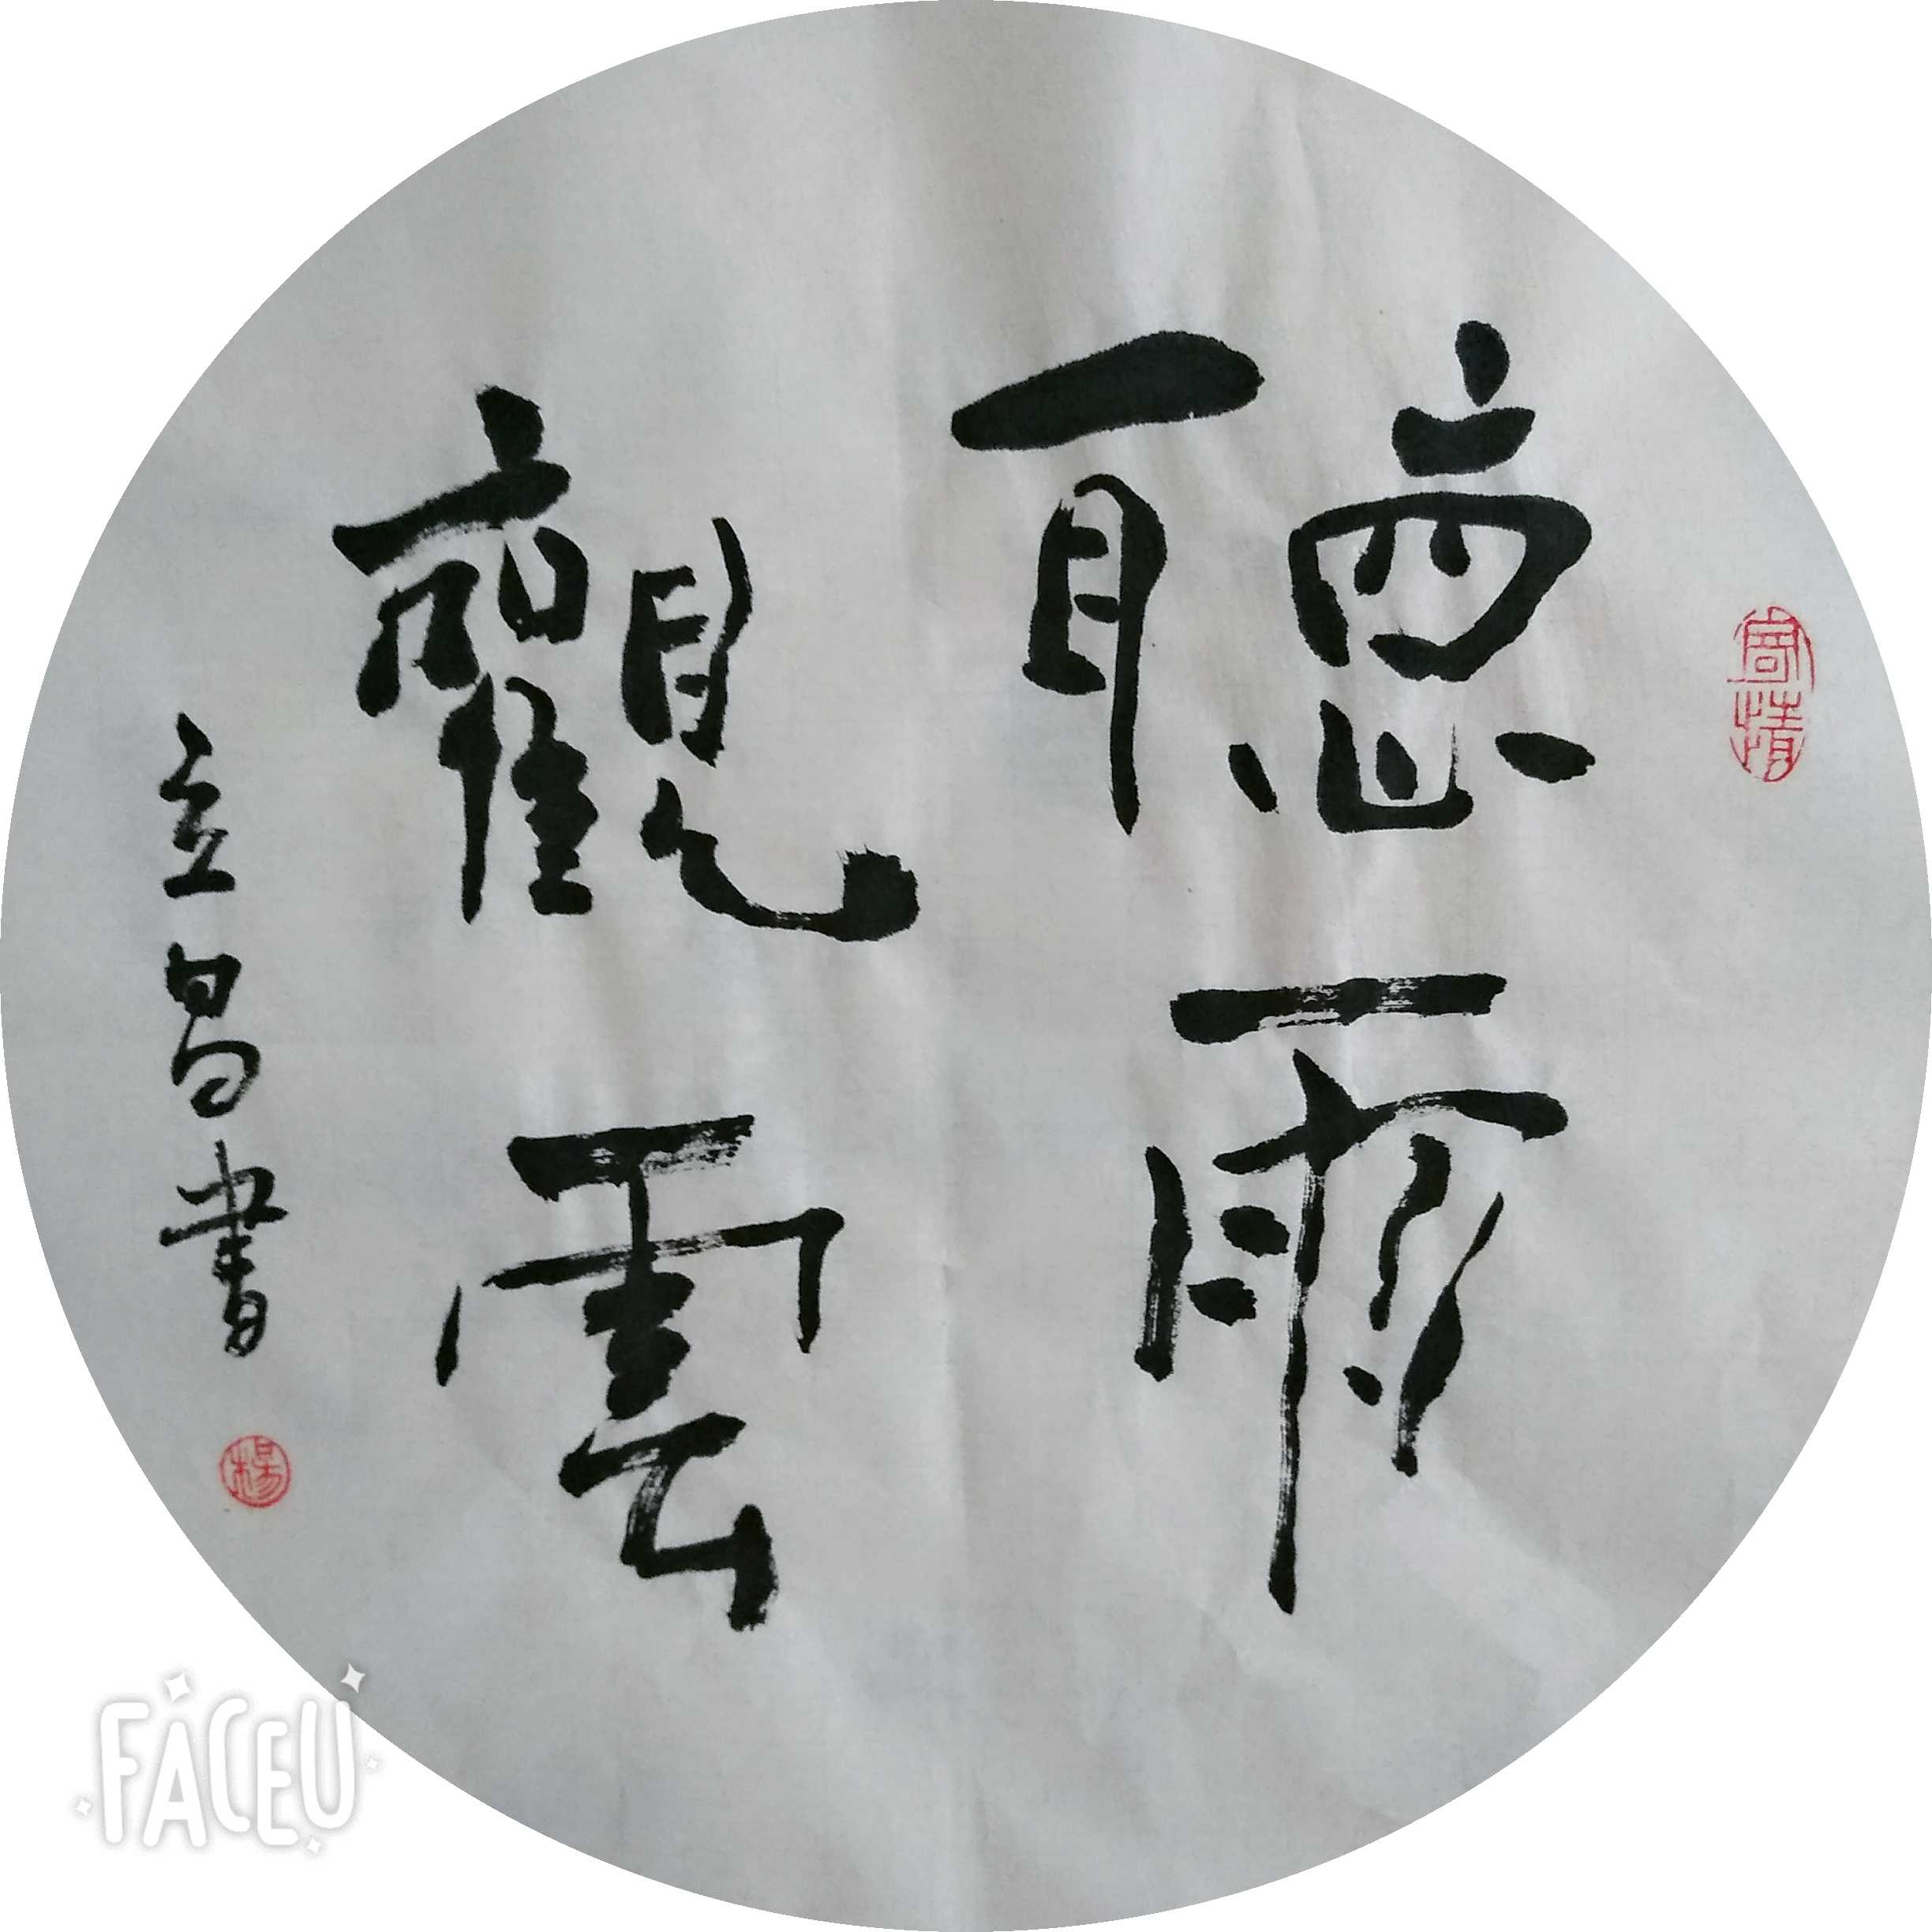 寄情
聽雨
觀雲
立昌書
楊
FACEU